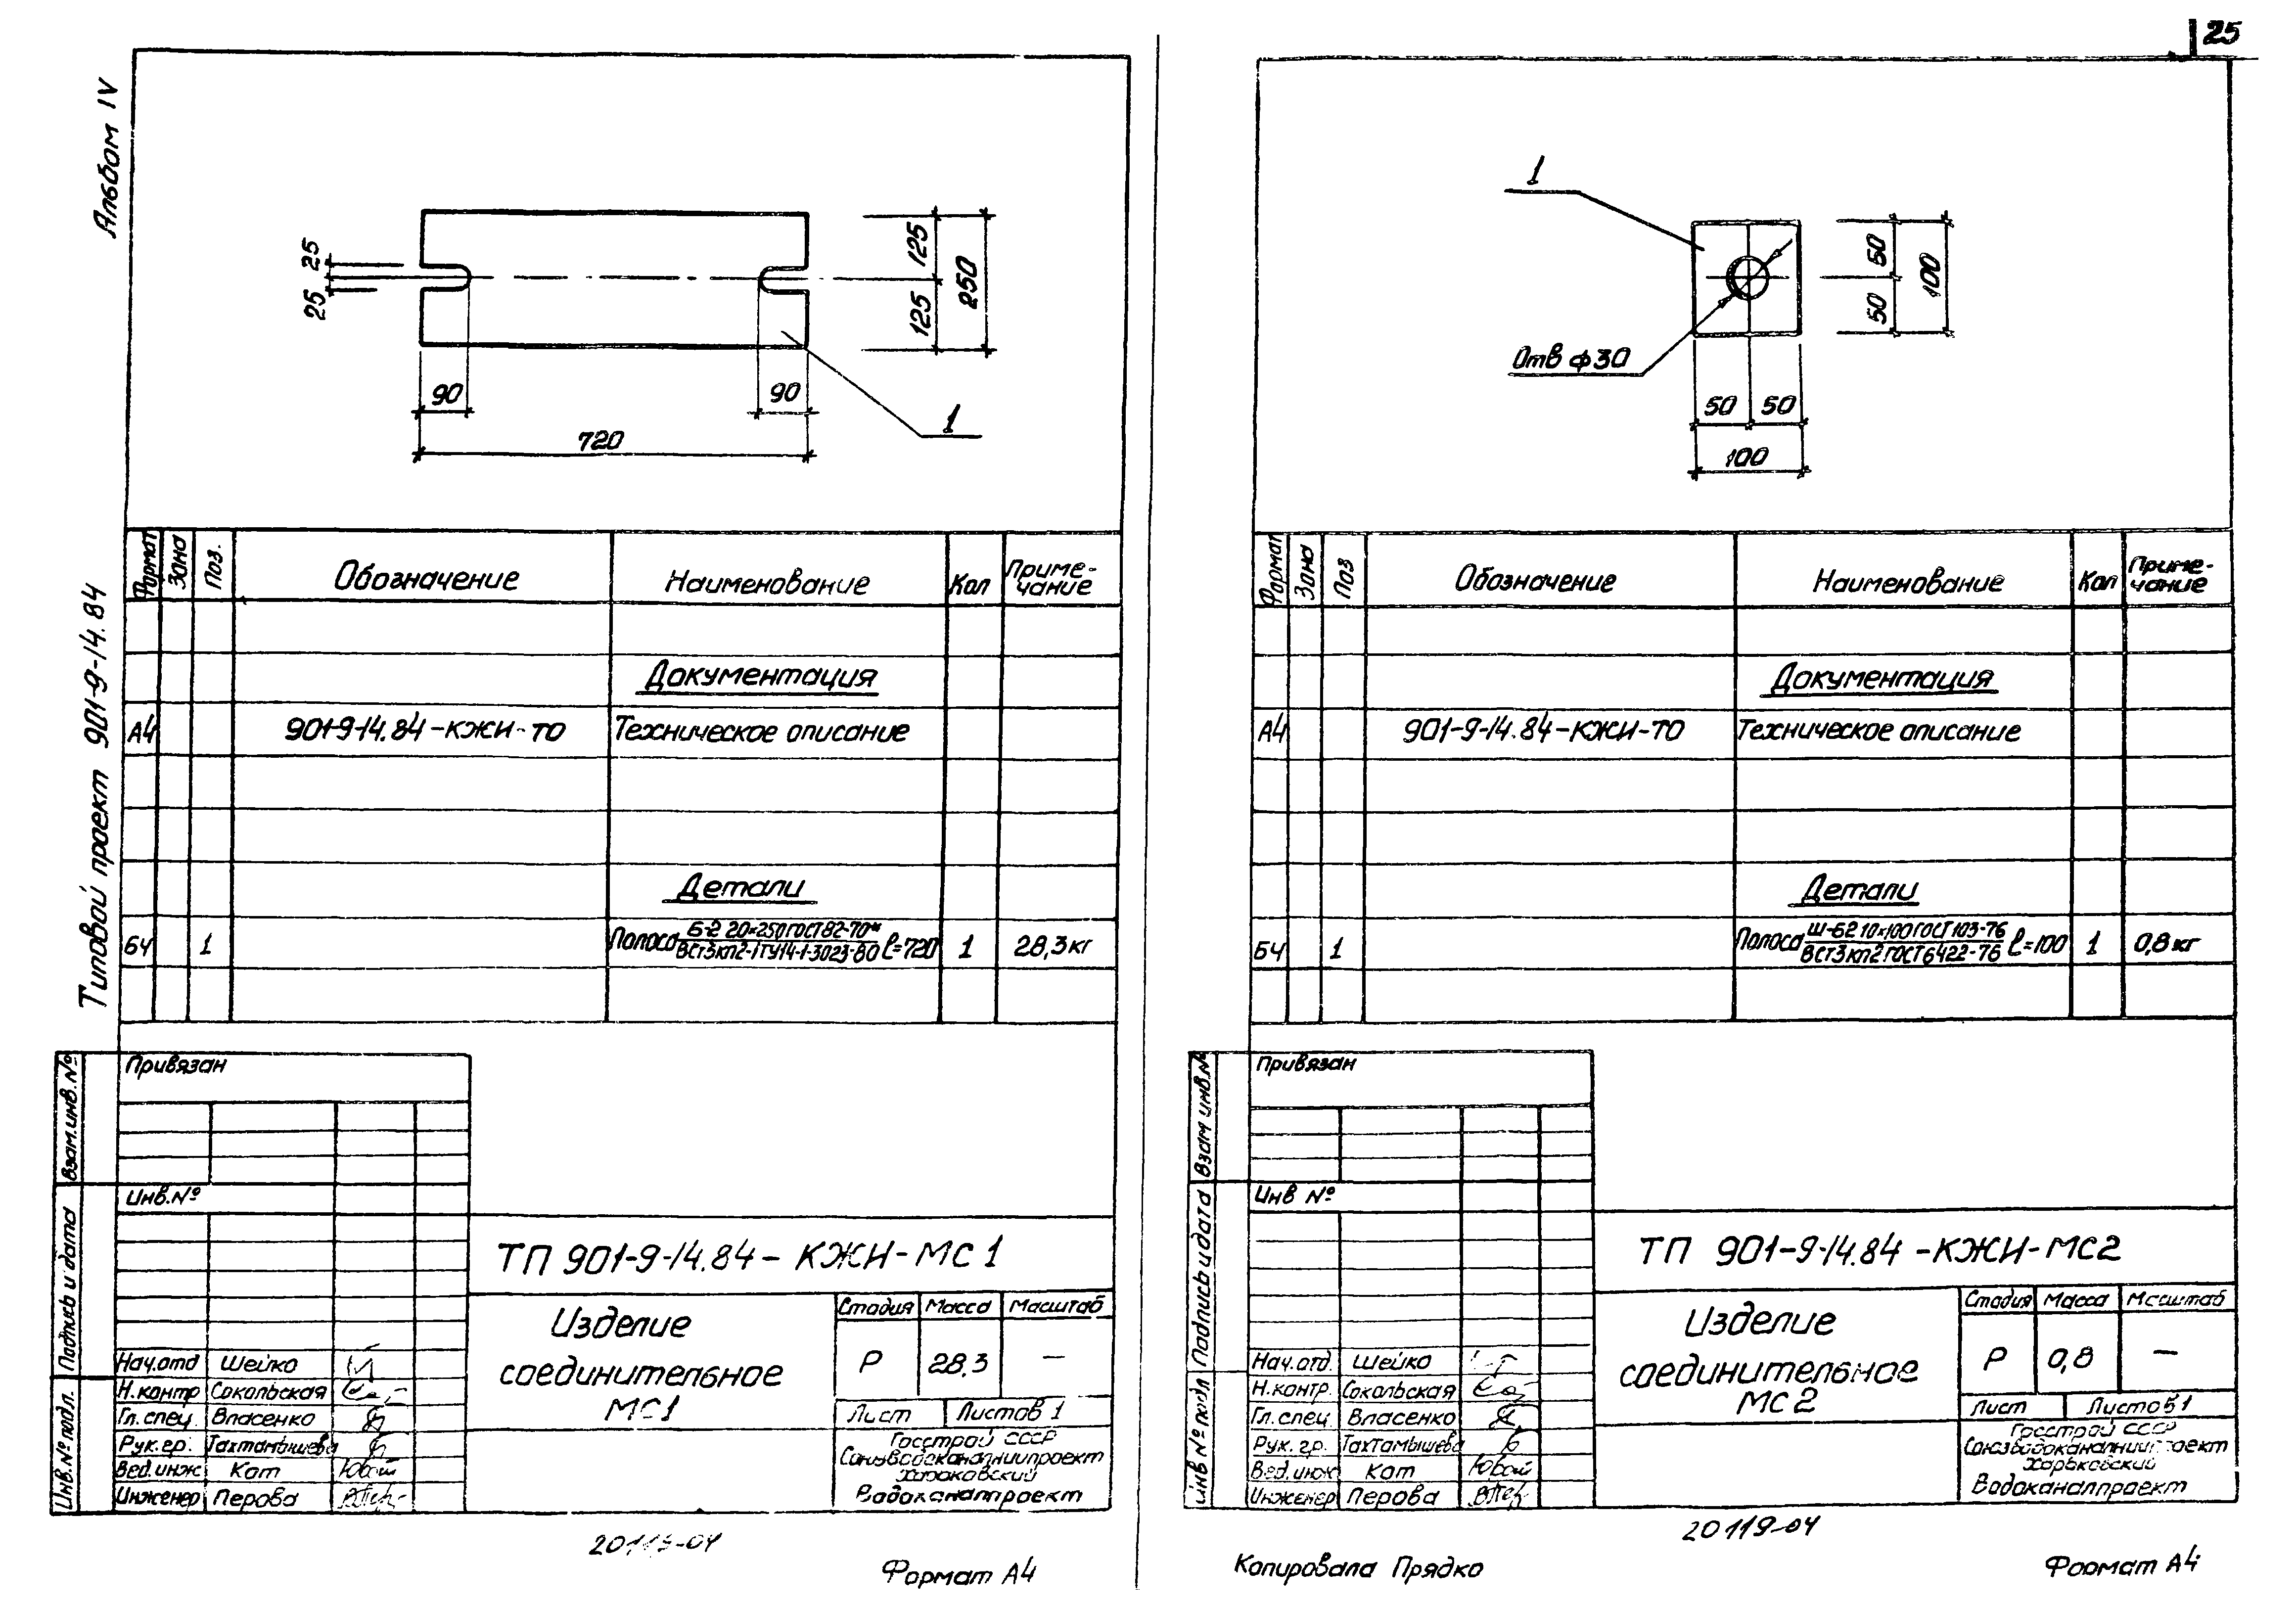 25
Альбом IV
Типовой проект 901-9-14.84
25
25
125
125
250
90
90
720
1
Формат
Зона
Поз.
Обозначение
Наименование
Кол
Приме-
чание
Документация
А4
901-9-14.84-КЖИ-ТО
Техническое описание
Детали
БЧ
1
Полоса Б-2 20×250 ГОСТ 82-70*
ВСт3кп2-1 ТУ14-1-3023-80 ℓ=720
1
28,3кг
Привязан
Инв.№
Взам.инв.№
Подпись и дата
Инв.№ подл.
ТП 901-9-14.84-КЖИ-МС1
Изделие
соединительное
МС1
Стадия Масса Масштаб
Р 28.3 —
Лист Листов 1
Госстрой СССР
Союзводоканалниипроект
Харьковский
Водоканалпроект
Нач.отд Шейко
Н.контр Сокольская
Гл.спец. Власенко
Рук.гр. Тахтамышева
Вед.инж Кот
Инженер Перова
Формат А4
1
Отв ф30
50
50
100
50 50
100
Формат
Зона
Поз
Обозначение
Наименование
Кол
Приме-
чание
Документация
А4
901-9-14.84-КЖИ-ТО
Техническое описание
Детали
БЧ
1
Полоса Ш-Б2 10×100 ГОСТ 103-76
ВСт3кп2 ГОСТ 6422-76 ℓ=100
1
0,8кг
Привязан
Инв №
Взам инв.№
Подпись и дата
Инв № подл
ТП 901-9-14.84-КЖИ-МС2
Изделие
соединительное
МС2
Стадия Масса Масштаб
Р 0,8 —
Лист Листов 1
Госстрой СССР
Союзводоканалниипроект
Харьковский
Водоканалпроект
Нач.отд. Шейко
Н.контр. Сокольская
Гл.спец. Власенко
Рук.гр. Тахтамышева
Вед.инж Кот
Инженер Перова
20119-04
Копировала Прядко
Формат А4